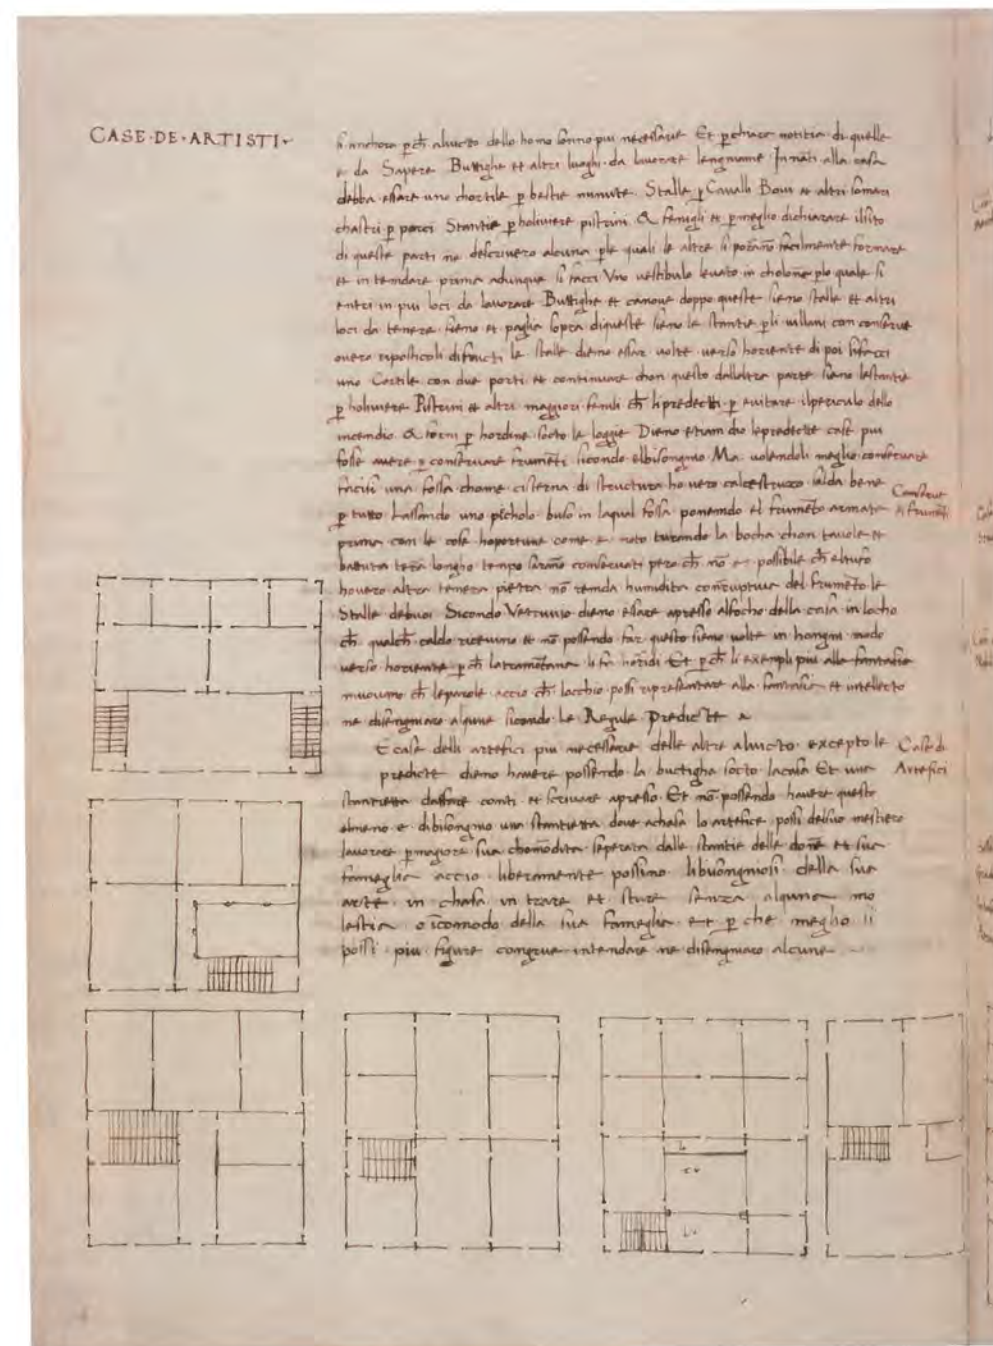 CASE·DE·ARTISTI
si anchora p ch̄ alvicto dello homo sonno piu necessarie Et p chiara notitia di quelle
e da Sapere Buttighe et altri luoghi da lavorare lengniame Innāti alla casa
debba essare uno chortile p bestie minute. Stalle p Cavalli Bovi et altri somari
chastri p porci Stantie p holiviere pistrini & famigli et p meglio dichiarare il sito
di queste parti ne descrivero alcuna ple quali le altre si porāno facilmente formare
et intendare prima adunque si facci Uno vestibulo levato in cholone plo quale si
entri in piu loci da lavorare Buttighe et canove doppo queste sieno stalle et altri
loci da tenere fieno et paglia sopra di queste sieno le stantie p li villani con conserve
overo riposticoli di fructi le stalle dieno essar volte verso horiente di poi si facci
uno Cortile con due porti et continuare chon questo dallaltra parte sieno le stantie
p holiviere Pistrini et altri maggiori famili ch̄ li predecti p evitare il periculo dello
incendio & forni p hordine socto le loggie Dieno etiam dio le predecte case piu
fosse avere p conservare frumēti sicondo el bisongnio Ma volendoli meglio conservare
facisi una fossa chome cisterna di structura ho vero calcestruzzo salda bene
p tutto Lassando uno picholo buso in la qual fossa ponendo el frumēto armata
Conserve di frumēti
prima con le cose hoportune come e noto turando la bocha chon tavole et
battuta terra longho tempo sarāno conservati pero ch̄ nō e possibile ch̄ el tufo
hovero altra tenera pietra nō renda humidita corruptiva del frumēto le
Stalle de buoi Sicondo Vetruvio dieno essare apresso al focho della casa in locho
ch̄ qualch̄ caldo ricevino et nō possendo far questo sieno volte in hongni modo
verso horiente p ch̄ la tramōtana li fa horridi Et p ch̄ li exempli piu alla fantasia
muovino ch̄ le parole accio ch̄ locchio possi ripresentare alla fantasia et intellecto
ne disengniaro alqune sicondo le Regule Predicte
E case delli artefici piu necessarie delle altre alvicto excepto le
Case di Artefici
predicte dieno havere possendo la buctigha socto la casa Et una
stantietta da fare conti et scrivare apresso Et nō possendo havere questo
almeno e di bisongnio una stantietta dove achasa lo artefice possi del suo mestiero
lavorare p magiore sua chomodita seperata dalle stantie delle done et sua
fameglia accio liberamente possino li buongniosi della sua
arte in chasa intrare et stare senza alguna mo
lestia o īcomodo della sua fameglia et p che meglio si
possi piu figure congrue intendare ne disengniaro alcune